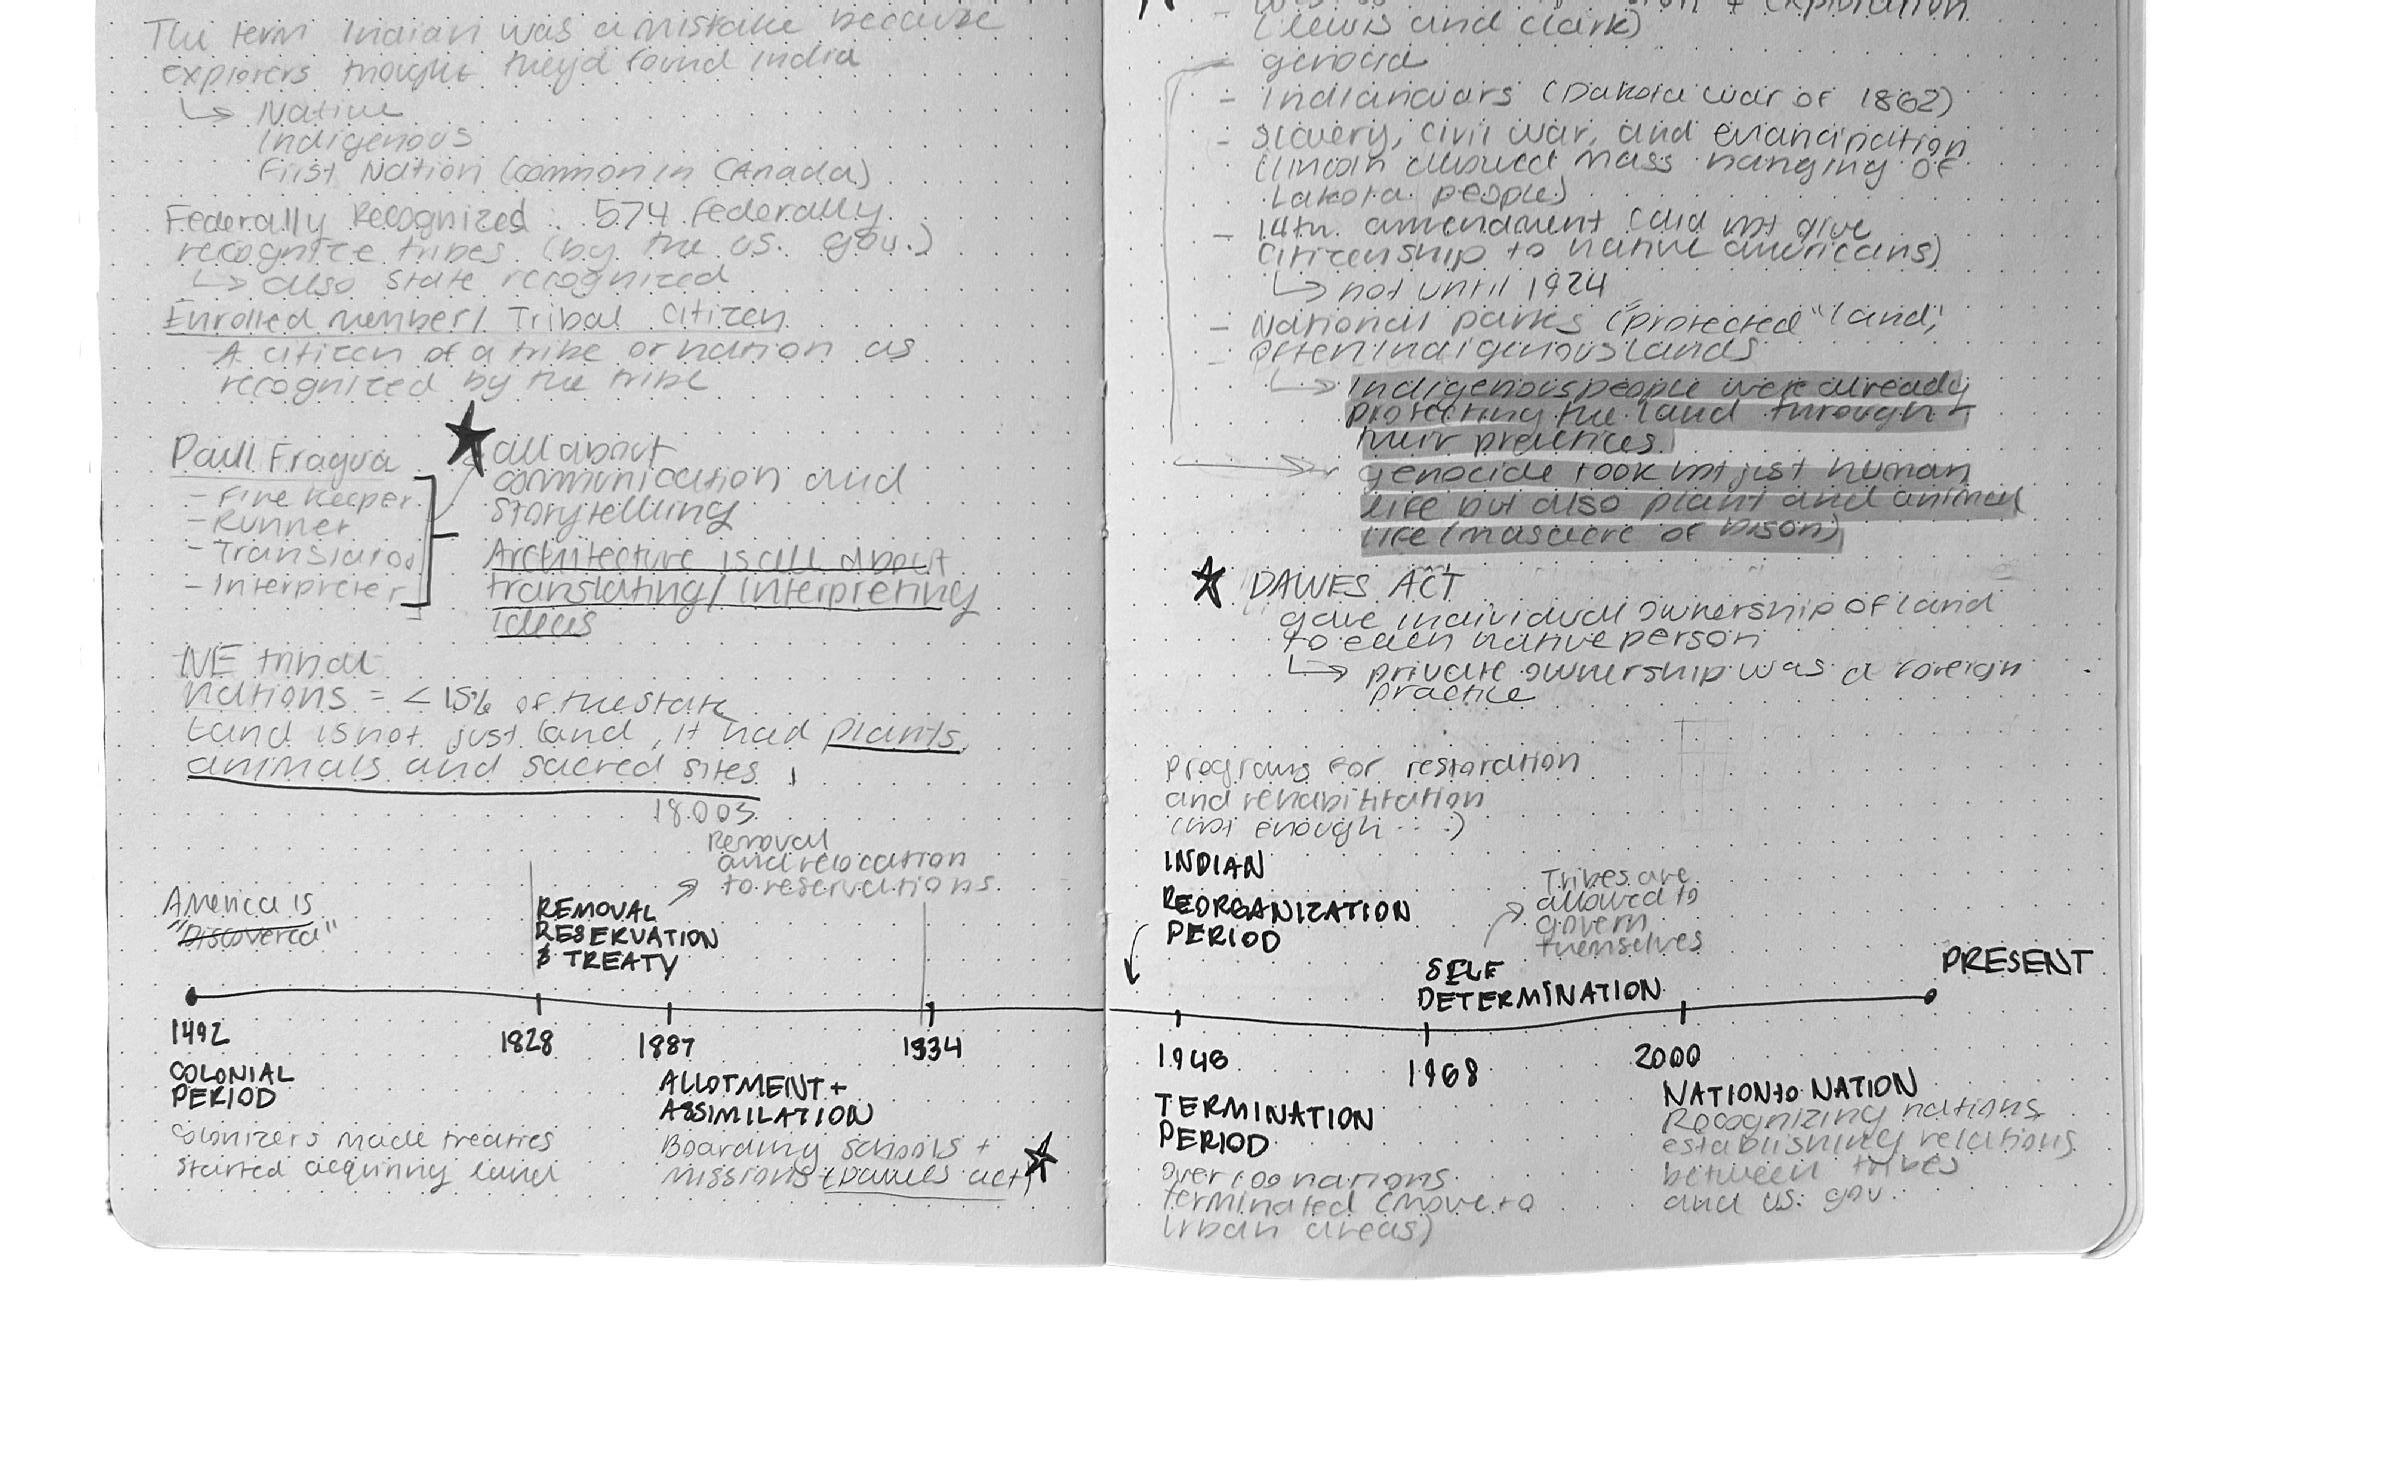 The term Indian was a mistake because
explorers thought they'd found India
↳ Native
Indigenous
First Nation (common in Canada)
Federally Recognized: 574 federally
recognize tribes (by the US. gov.)
↳ also state recognized
Enrolled member/ Tribal Citizen
A citizen of a tribe or nation as
recognized by the tribe
Paull Fragua
- Fire Keeper
- Runner
- Translator
- Interpreter
★ all about
communication and
storytelling
Architecture is all about
translating/interpreting
ideas
NE tribal
nations = < 15% of the state
Land is not just land, it had plants,
animals and sacred sites
1800s
Removal
and relocation
to reservations
America is
"Discovered"
REMOVAL
RESERVATION
& TREATY
1492
1828
1887
1934
COLONIAL
PERIOD
colonizers made treaties
started acquiring land
ALLOTMENT +
ASSIMILATION
Boarding schools +
missions + (Dawes act)
+ exploration
(Lewis and Clark)
- genocid
- Indian wars (Dakota war of 1862)
- slavery, civil war, and emancipation
(Lincoln allowed mass hanging of
Lakota people)
- 14th. amendment (did not give
citizenship to native americans)
↳ not until 1924
- National parks ("protected" land,
- often indigenous lands
↳ Indigenous people were already
protecting the land through
their practices.
genocide took not just human
life but also plant and animal
life (masacre of bison)
★ DAWES ACT
gave individual ownership of land
to each native person
↳ private ownership was a foreign
practice
programs for restoration
and rehabilitation
(not enough...)
INDIAN
REORGANIZATION
PERIOD
Tribes are
allowed to
govern
themselves
SELF
DETERMINATION
PRESENT
1946
1968
2000
TERMINATION
PERIOD
over 100 nations
terminated (move to
urban areas)
NATION to NATION
Recognizing nations
establishing relations
between tribes
and US. gov.